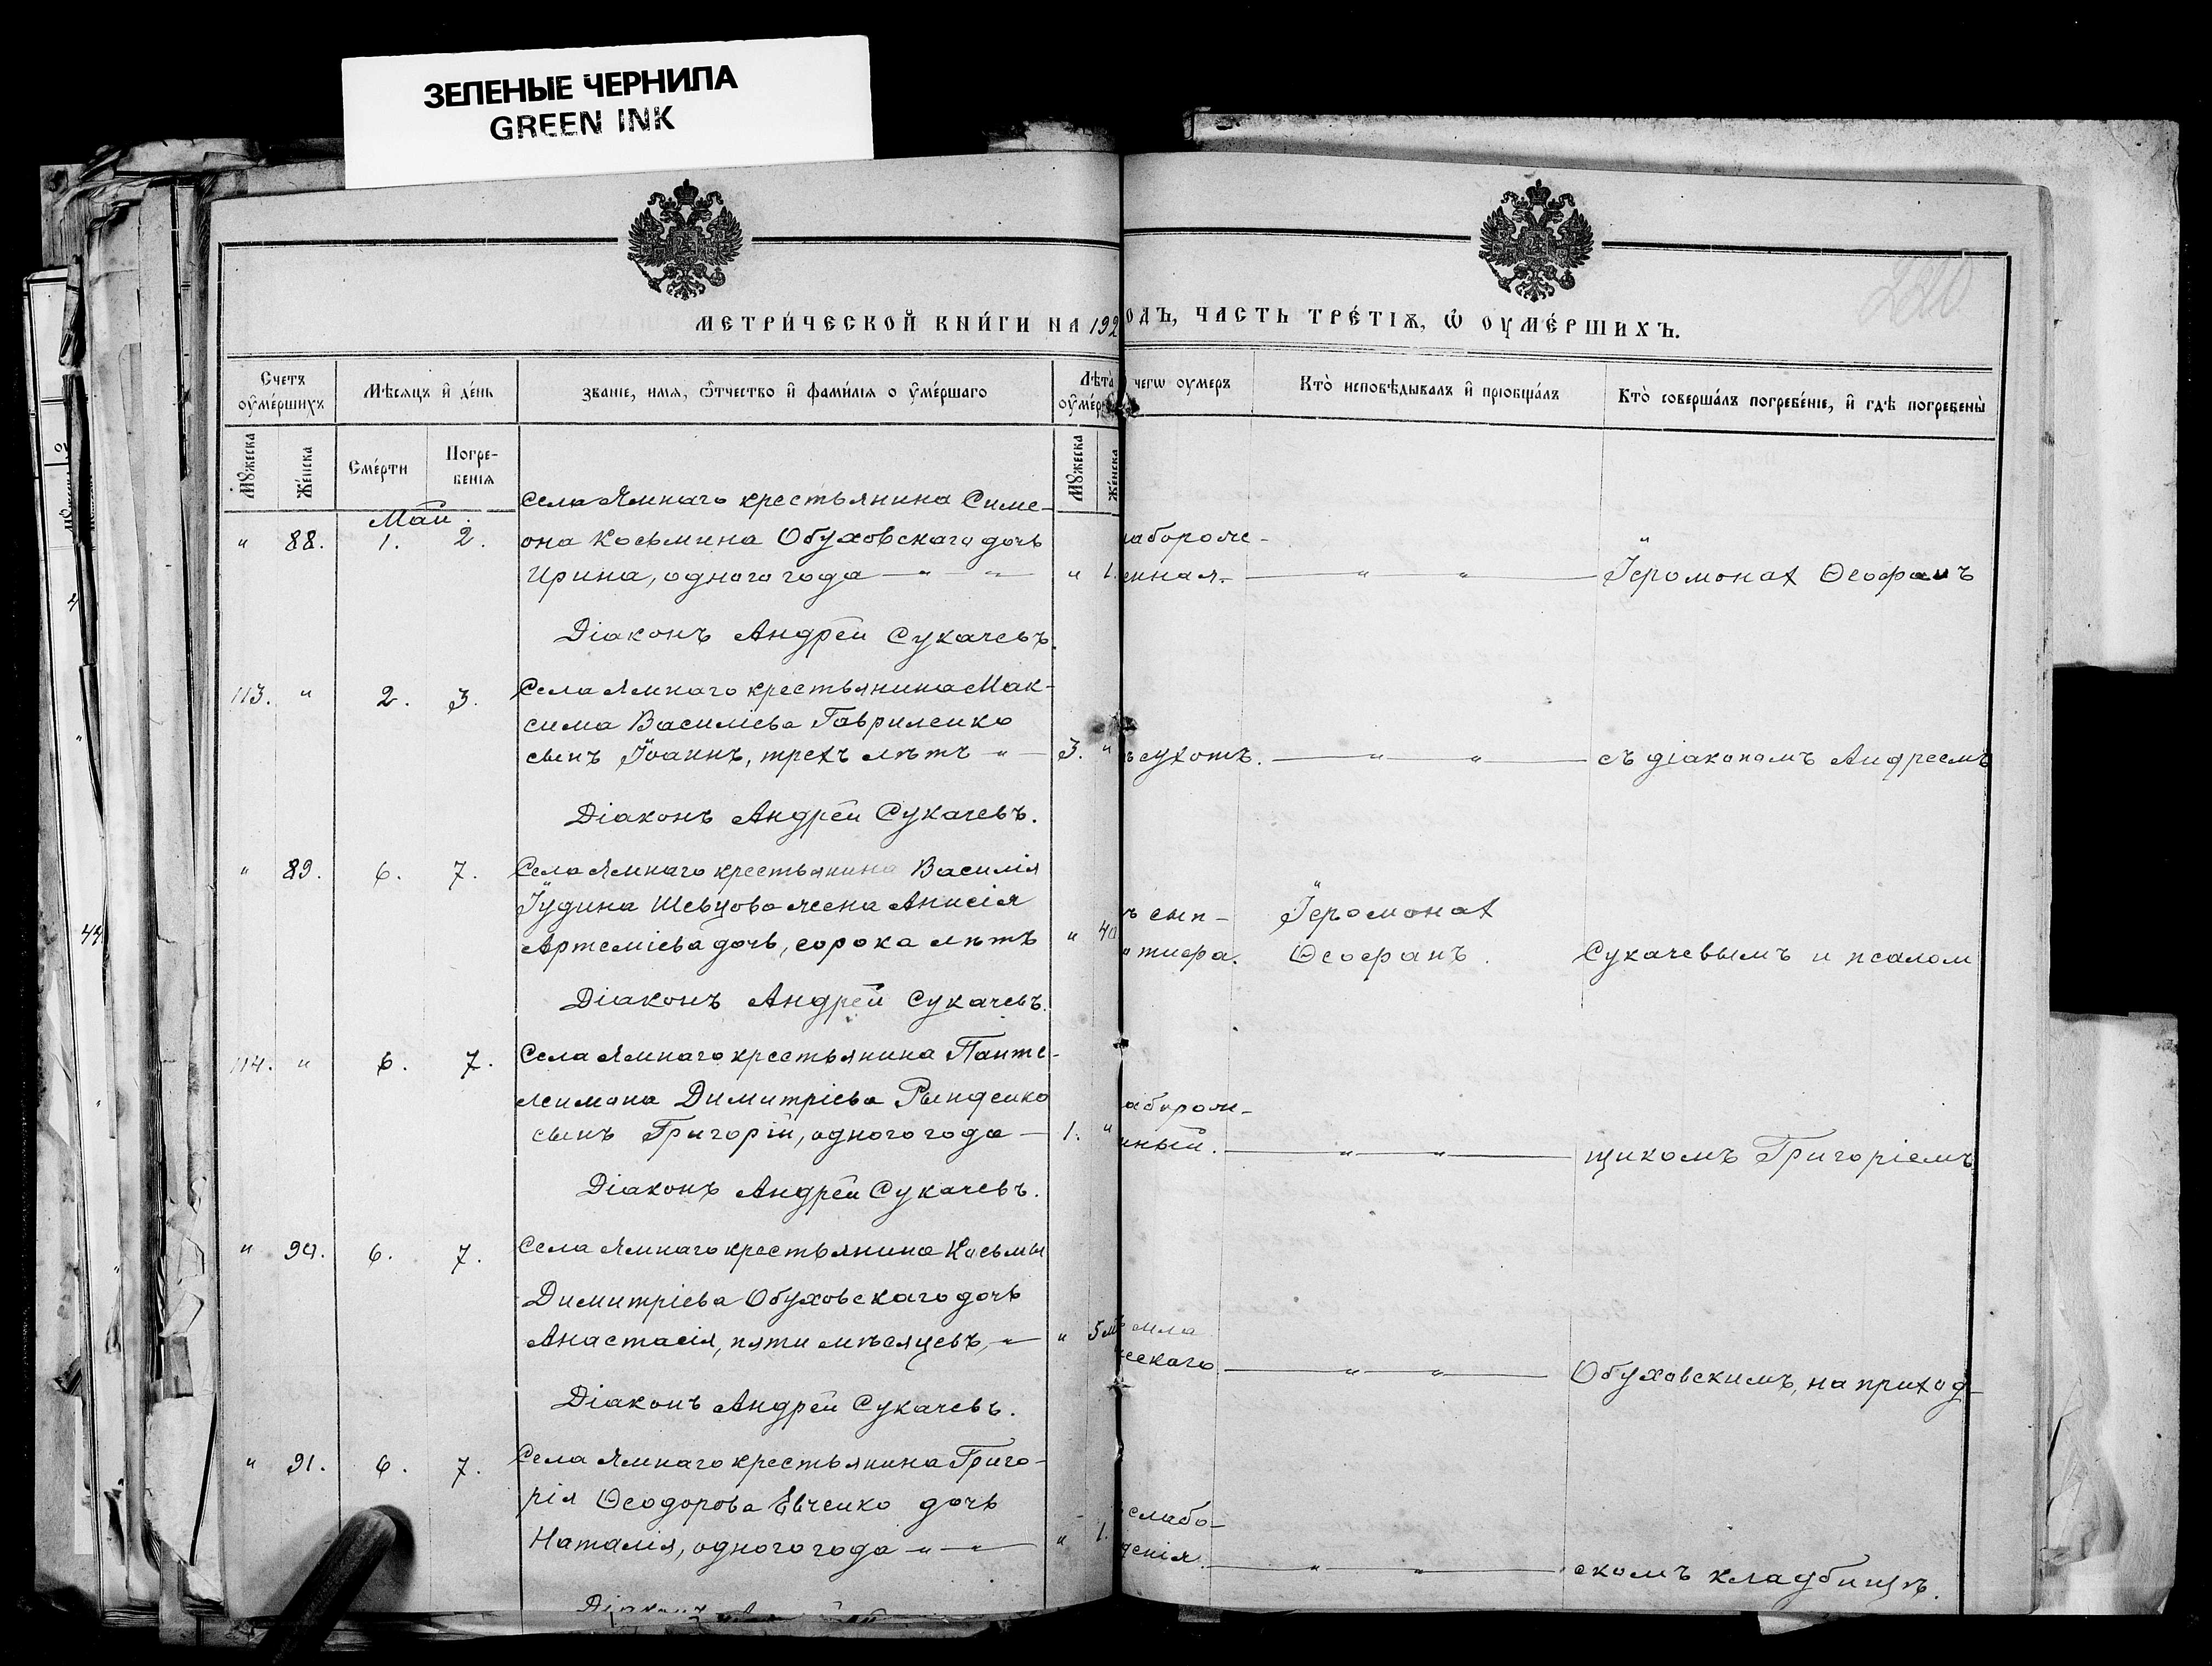 ЗЕЛЕНЫЕ ЧЕРНИЛА
GREEN INK
МЕТРИ́ЧЕСКОЙ КНИ́ГИ НА 192
ОДЪ, ЧАСТЬ ТРЕ́ТІѦ, Ѿ ОУМЕ́РШИХЪ.
Счетъ оуме́ршихъ
Мѣсяцъ и де́нь
Званіе, имя, ѿтчество и фами́лія оуме́ршаго
Лѣта оуме́р
чегѡ оумеръ
Кто̀ исповѣдывалъ и пріобща́лъ
Кто̀ соверша́лъ погребе́ніе, и гдѣ погребены̀
Мꙋжеска
Же́нска
Сме́рти
Погре-
бенія
Мꙋжеска
Же́нска
Села Ямнаго крестьянина Симе-
Май.
" 88. 1. 2. она Косьмина Обуховскаго дочь
Ирина, одного года — " — " —
" 1.
аброже-
енная. — " — " —
Іеромонах Ѳеофанъ
Діаконъ Андрей Сукачевъ.
113. " 2. 3. Села Ямнаго крестьянина Мак-
сима Василіева Гавриленко
сынъ Іоаннъ, трехъ лѣтъ — " —
3. "
сухотъ. — " — " —
съ діакономъ Андреемъ
Діаконъ Андрей Сукачевъ.
" 89. 6. 7. Села Ямнаго крестьянина Василія
Іудина Шевцова жена Анисія
Артеміева дочь, сорока лѣтъ
" 40
ъ сып-
тифа.
Іеромонах
Ѳеофанъ.
Сукачевымъ и псалом
Діаконъ Андрей Сукачевъ.
114. " 6. 7. Села Ямнаго крестьянина Панте-
леимона Димитріева Рынденко
сынъ Григорій, одного года —
1. "
аборож-
нный. — " — " —
щикомъ Григоріемъ
Діаконъ Андрей Сукачевъ.
" 90. 6. 7. Села Ямнаго крестьянина Косьмы
Димитріева Обуховскаго дочь
Анастасія, пяти мѣсяцевъ, — " —
" 5 м
мла
ческаго — " — " —
Обуховскимъ, на приход-
Діаконъ Андрей Сукачевъ.
" 91. 6. 7. Села Ямнаго крестьянина Григо-
рія Ѳеодорова Евченко дочь
Наталія, одного года — " — " —
" 1.
слабо-
денія. — " — " —
скомъ кладбищѣ.
Діаконъ